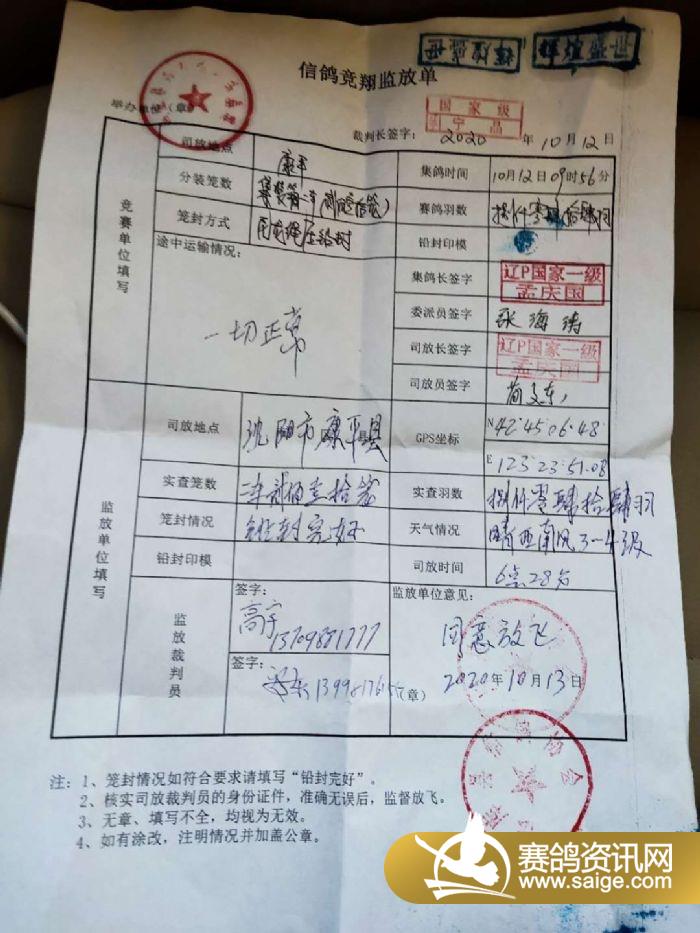 信鸽竞翔监放单
辉煌盛世
举办单位（章）
国家级
裁判长签字：2020年10月12日
竞赛单位填写
司放地点 康平 集鸽时间 10月12日09时56分
分装笼数 赛鸽羽数
笼封方式 铅封印模
途中运输情况： 一切正常
集鸽长签字 辽P国家一级 孟庆国
委派员签字 张海涛
司放长签字 辽P国家一级 孟庆国
司放员签字
监放单位填写
司放地点 沈阳市康平县 GPS坐标 N 42°45′06.48
E 123°23′51.08
实查笼数 实查羽数 捌仟零肆拾肆羽
笼封情况 铅封完好 天气情况 晴西南风3-4级
铅封印模 司放时间 6点28分
监放裁判员
签字： 高宇
13709881777
签字：
监放单位意见：
同意放飞
（章） 2020年10月13日
注：1、笼封情况如符合要求请填写“铅封完好”。
2、核实司放裁判员的身份证件，准确无误后，监督放飞。
3、无章、填写不全，均视为无效。
4、如有涂改，注明情况并加盖公章。
赛鸽资讯网
www.saige.com